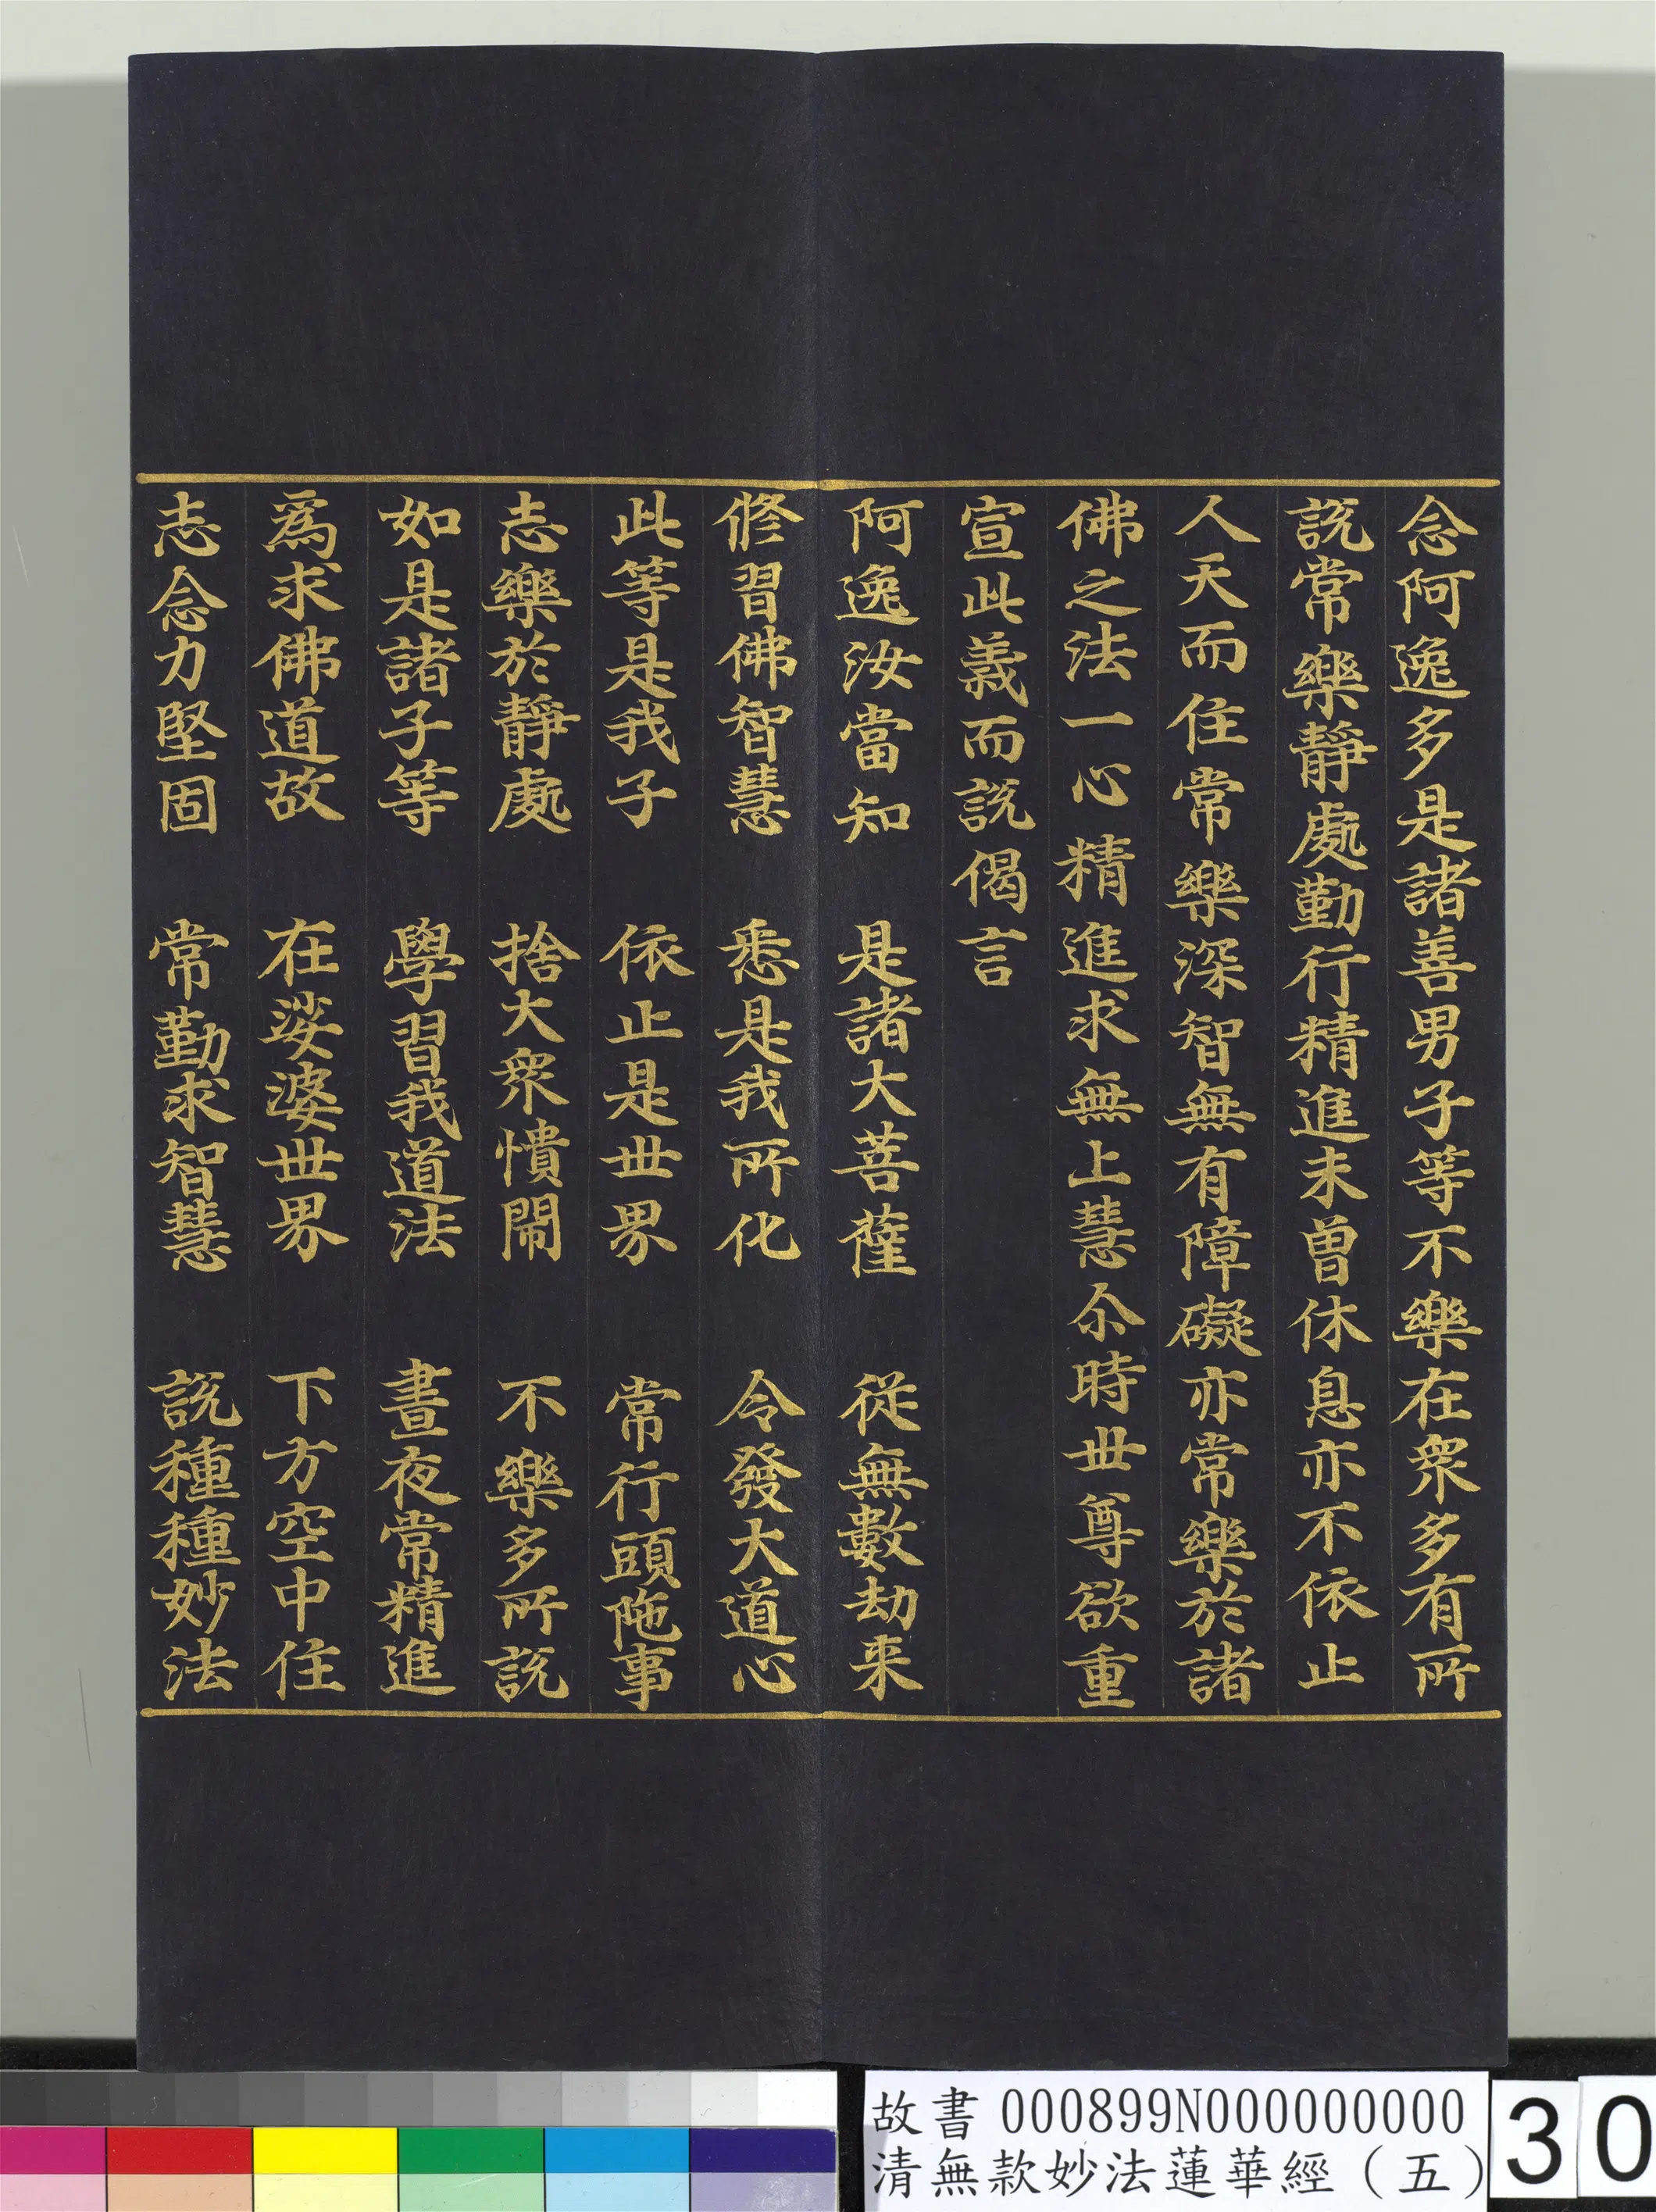 念阿逸多是諸善男子等不樂在衆多有所
說常樂靜處勤行精進未曾休息亦不依止
人天而住常樂深智無有障礙亦常樂於諸
佛之法一心精進求無上慧尒時世尊欲重
宣此義而說偈言
阿逸汝當知　是諸大菩薩　從無數劫来
修習佛智慧　悉是我所化　令發大道心
此等是我子　依止是世界　常行頭陁事
志樂於靜處　捨大衆憒閙　不樂多所說
如是諸子等　學習我道法　晝夜常精進
為求佛道故　在娑婆世界　下方空中住
志念力堅固　常勤求智慧　說種種妙法
故書 000899N000000000
清無款妙法蓮華經（五）
30